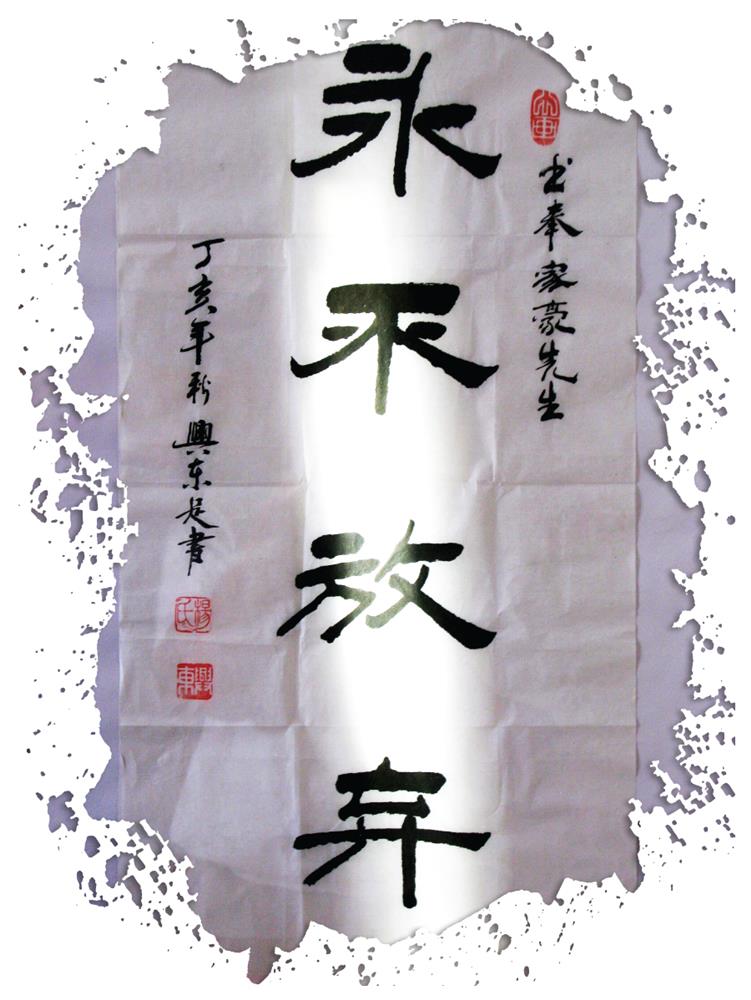 书奉家豪先生
永不放弃
丁亥年興东書
楊氏
興東